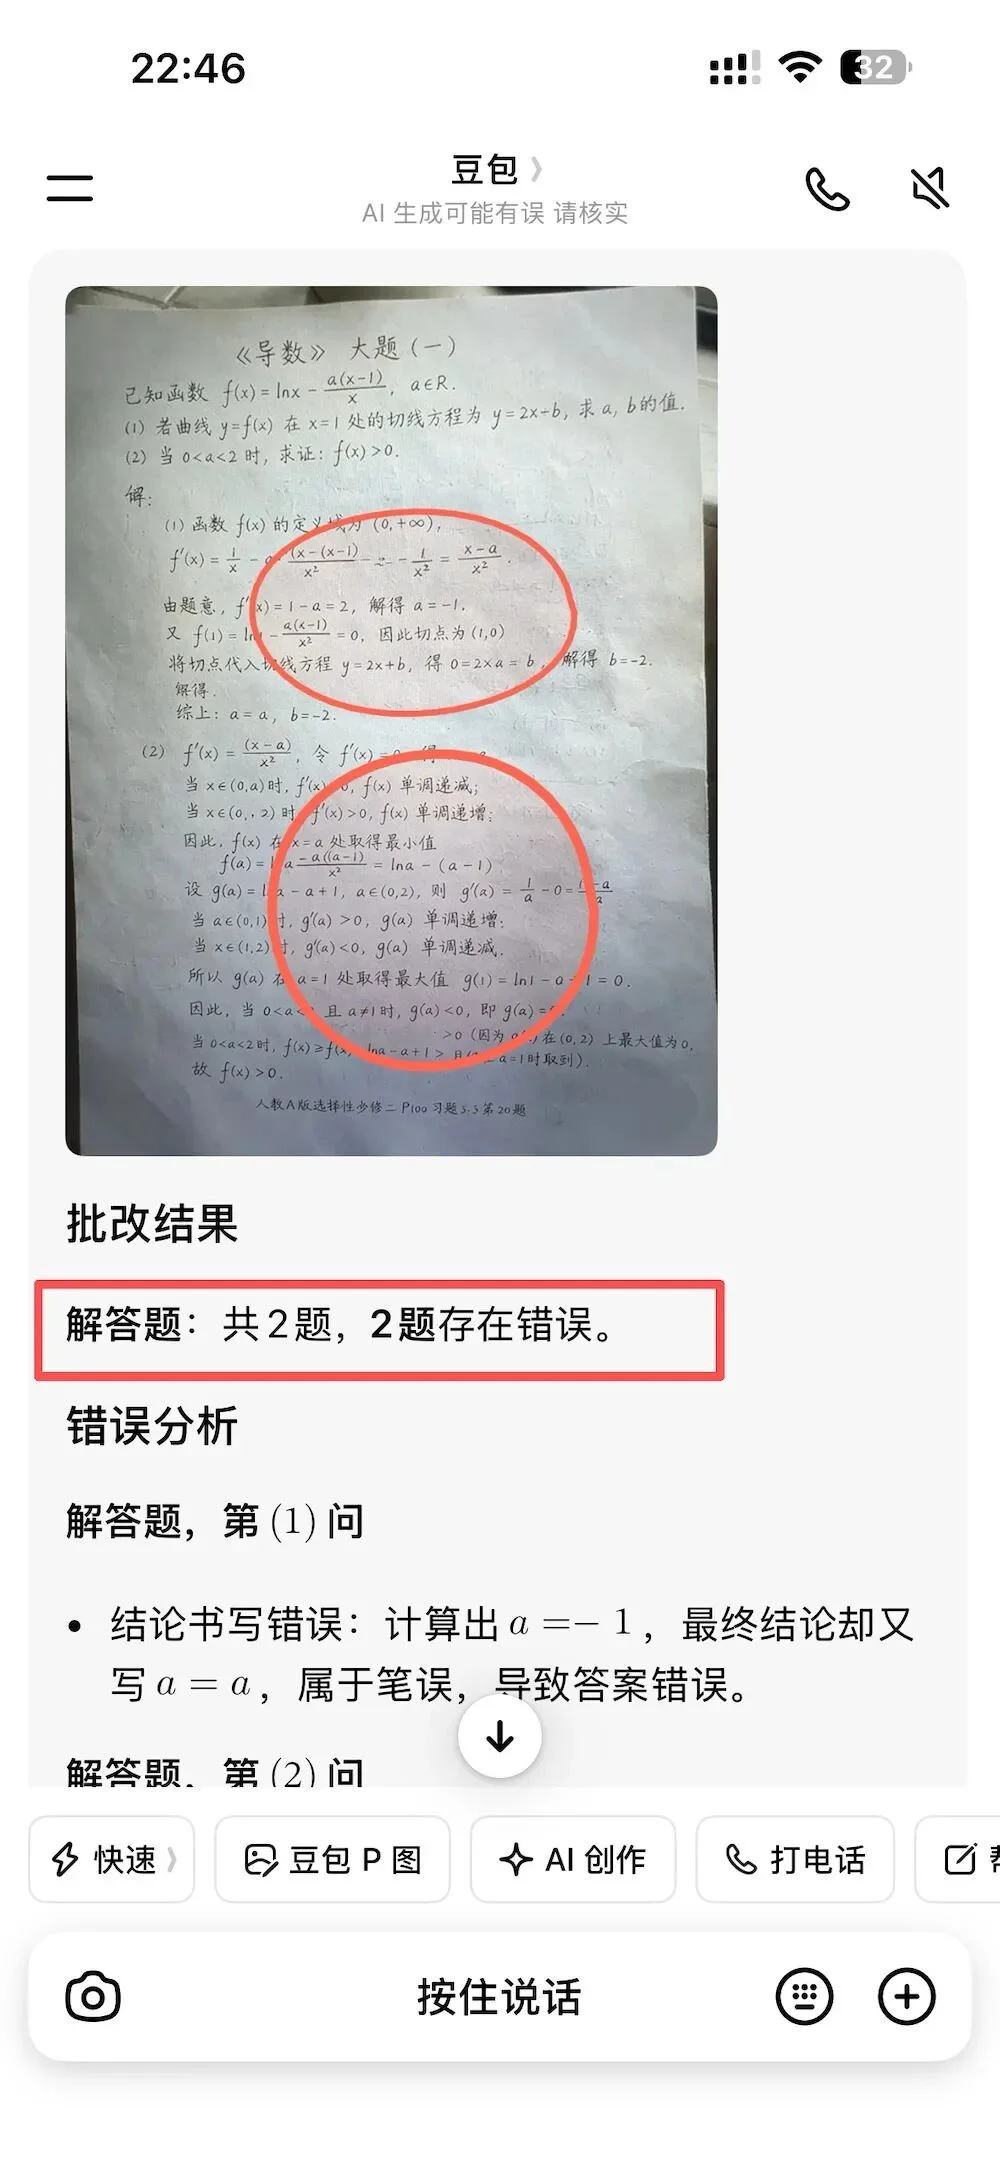 22:46
32
豆包
AI 生成可能有误 请核实
《导数》 大题(一)
已知函数 f(x)=lnx-a(x-1)/x, a∈R.
(1) 若曲线 y=f(x) 在 x=1 处的切线方程为 y=2x+b, 求 a, b的值.
(2) 当 0<a<2 时, 求证: f(x)>0.
解:
(1) 函数 f(x) 的定义域为 (0,+∞),
f'(x)=1/x - (x-(x-1)/x² - 1/x² = x-a/x².
由题意, f'(x)=1-a=2, 解得 a=-1.
又 f(1)=ln1-a(x-1)/x²=0, 因此切点为(1,0)
将切点代入切线方程 y=2x+b, 得 0=2×a=b, 解得 b=-2.
解得.
综上: a=a, b=-2.
(2) f'(x)=(x-a)/x², 令 f'(x)=0, 得
当 x∈(0,a)时, f'(x) 0, f(x) 单调递减;
当 x∈(0,,2)时 f'(x)>0, f(x) 单调递增;
因此, f(x) 在 x=a 处取得最小值
f(a)=l a-a((a-1)/x²=lna-(a-1)
设 g(a)=l a-a+1, a∈(0,2), 则 g'(a)=1/a-0=1-a/a
当 a∈(0,1)时, g'(a)>0, g(a) 单调递增:
当 x∈(1,2)时, g'(a)<0, g(a) 单调递减.
所以 g(a) 在 a=1 处取得最大值 g(1)=ln1-a+1=0.
因此, 当 0<a< 且 a≠1时, g(a)<0, 即 g(a)=
>0 (因为 在(0,2) 上最大值为0,
当 0<a<2时, f(x)≥f(x lna-a+1> a=1时取到).
故 f(x)>0.
人教A版选择性必修二 P100 习题5.3第20题
批改结果
解答题：共2题，2题存在错误。
错误分析
解答题，第(1)问
• 结论书写错误：计算出 a =− 1，最终结论却又
写 a = a，属于笔误，导致答案错误。
解答题，第(2)问
快速
豆包 P 图
AI 创作
打电话
按住说话